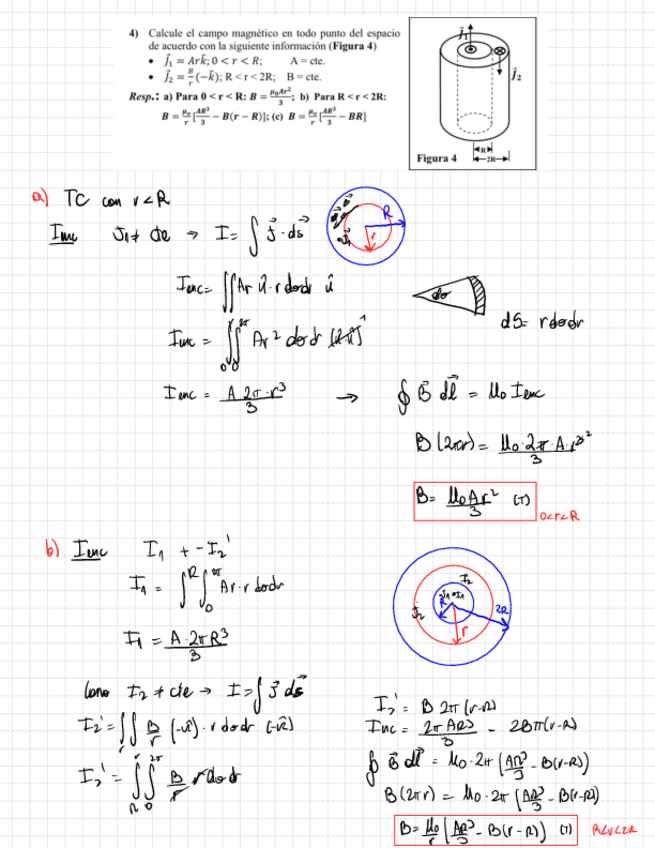 4) Calcule el campo magnético en todo punto del espacio
de acuerdo con la siguiente información (Figura 4)
• J⃗₁ = Ark̂; 0 < r < R; A = cte.
• J⃗₂ = B/r (−k̂); R < r < 2R; B = cte.
Resp.: a) Para 0 < r < R: B = μ₀Ar²/3; b) Para R < r < 2R:
B = μ₀/r [AR³/3 − B(r − R)]; (c) B = μ₀/r [AR³/3 − BR]
J⃗₁
J⃗₂
R
2R
Figura 4
a) TC con r<R
Ienc J₁ ≠ cte → I = ∫ J⃗·ds⃗
R
r
J₁
Ienc = ∬ Ar û · r dθdr û
dθ
dS = rdθdr
Ienc = ∫₀^r ∫₀^2π Ar² dθdr
Ienc = A 2π · r³/3 → ∮ B⃗ dl⃗ = μ₀ Ienc
B(2πr) = μ₀ · 2π · A · r³/3
B = μ₀Ar²/3 (T)
0<r<R
b) Ienc I₁ + -I₂'
I₁ = ∫₀^R ∫₀^2π Ar·r dθdr
I₂
R
2R
J₂
r
I₁ = A·2πR³/3
Como I₂ ≠ cte → I = ∫ J⃗ ds⃗
I₂' = ∬ B/r (-û) · r dθdr (-û)
I₂' = ∫_R^r ∫₀^2π B/r rdθdr
I₂' = B 2π (r-R)
Ienc = 2πAR³/3 - 2Bπ(r-R)
∮ B⃗ dl⃗ = μ₀ · 2π (AR³/3 - B(r-R))
B(2πr) = μ₀ · 2π (AR³/3 - B(r-R))
B = μ₀/r (AR³/3 - B(r-R)) (T) R<r<2R